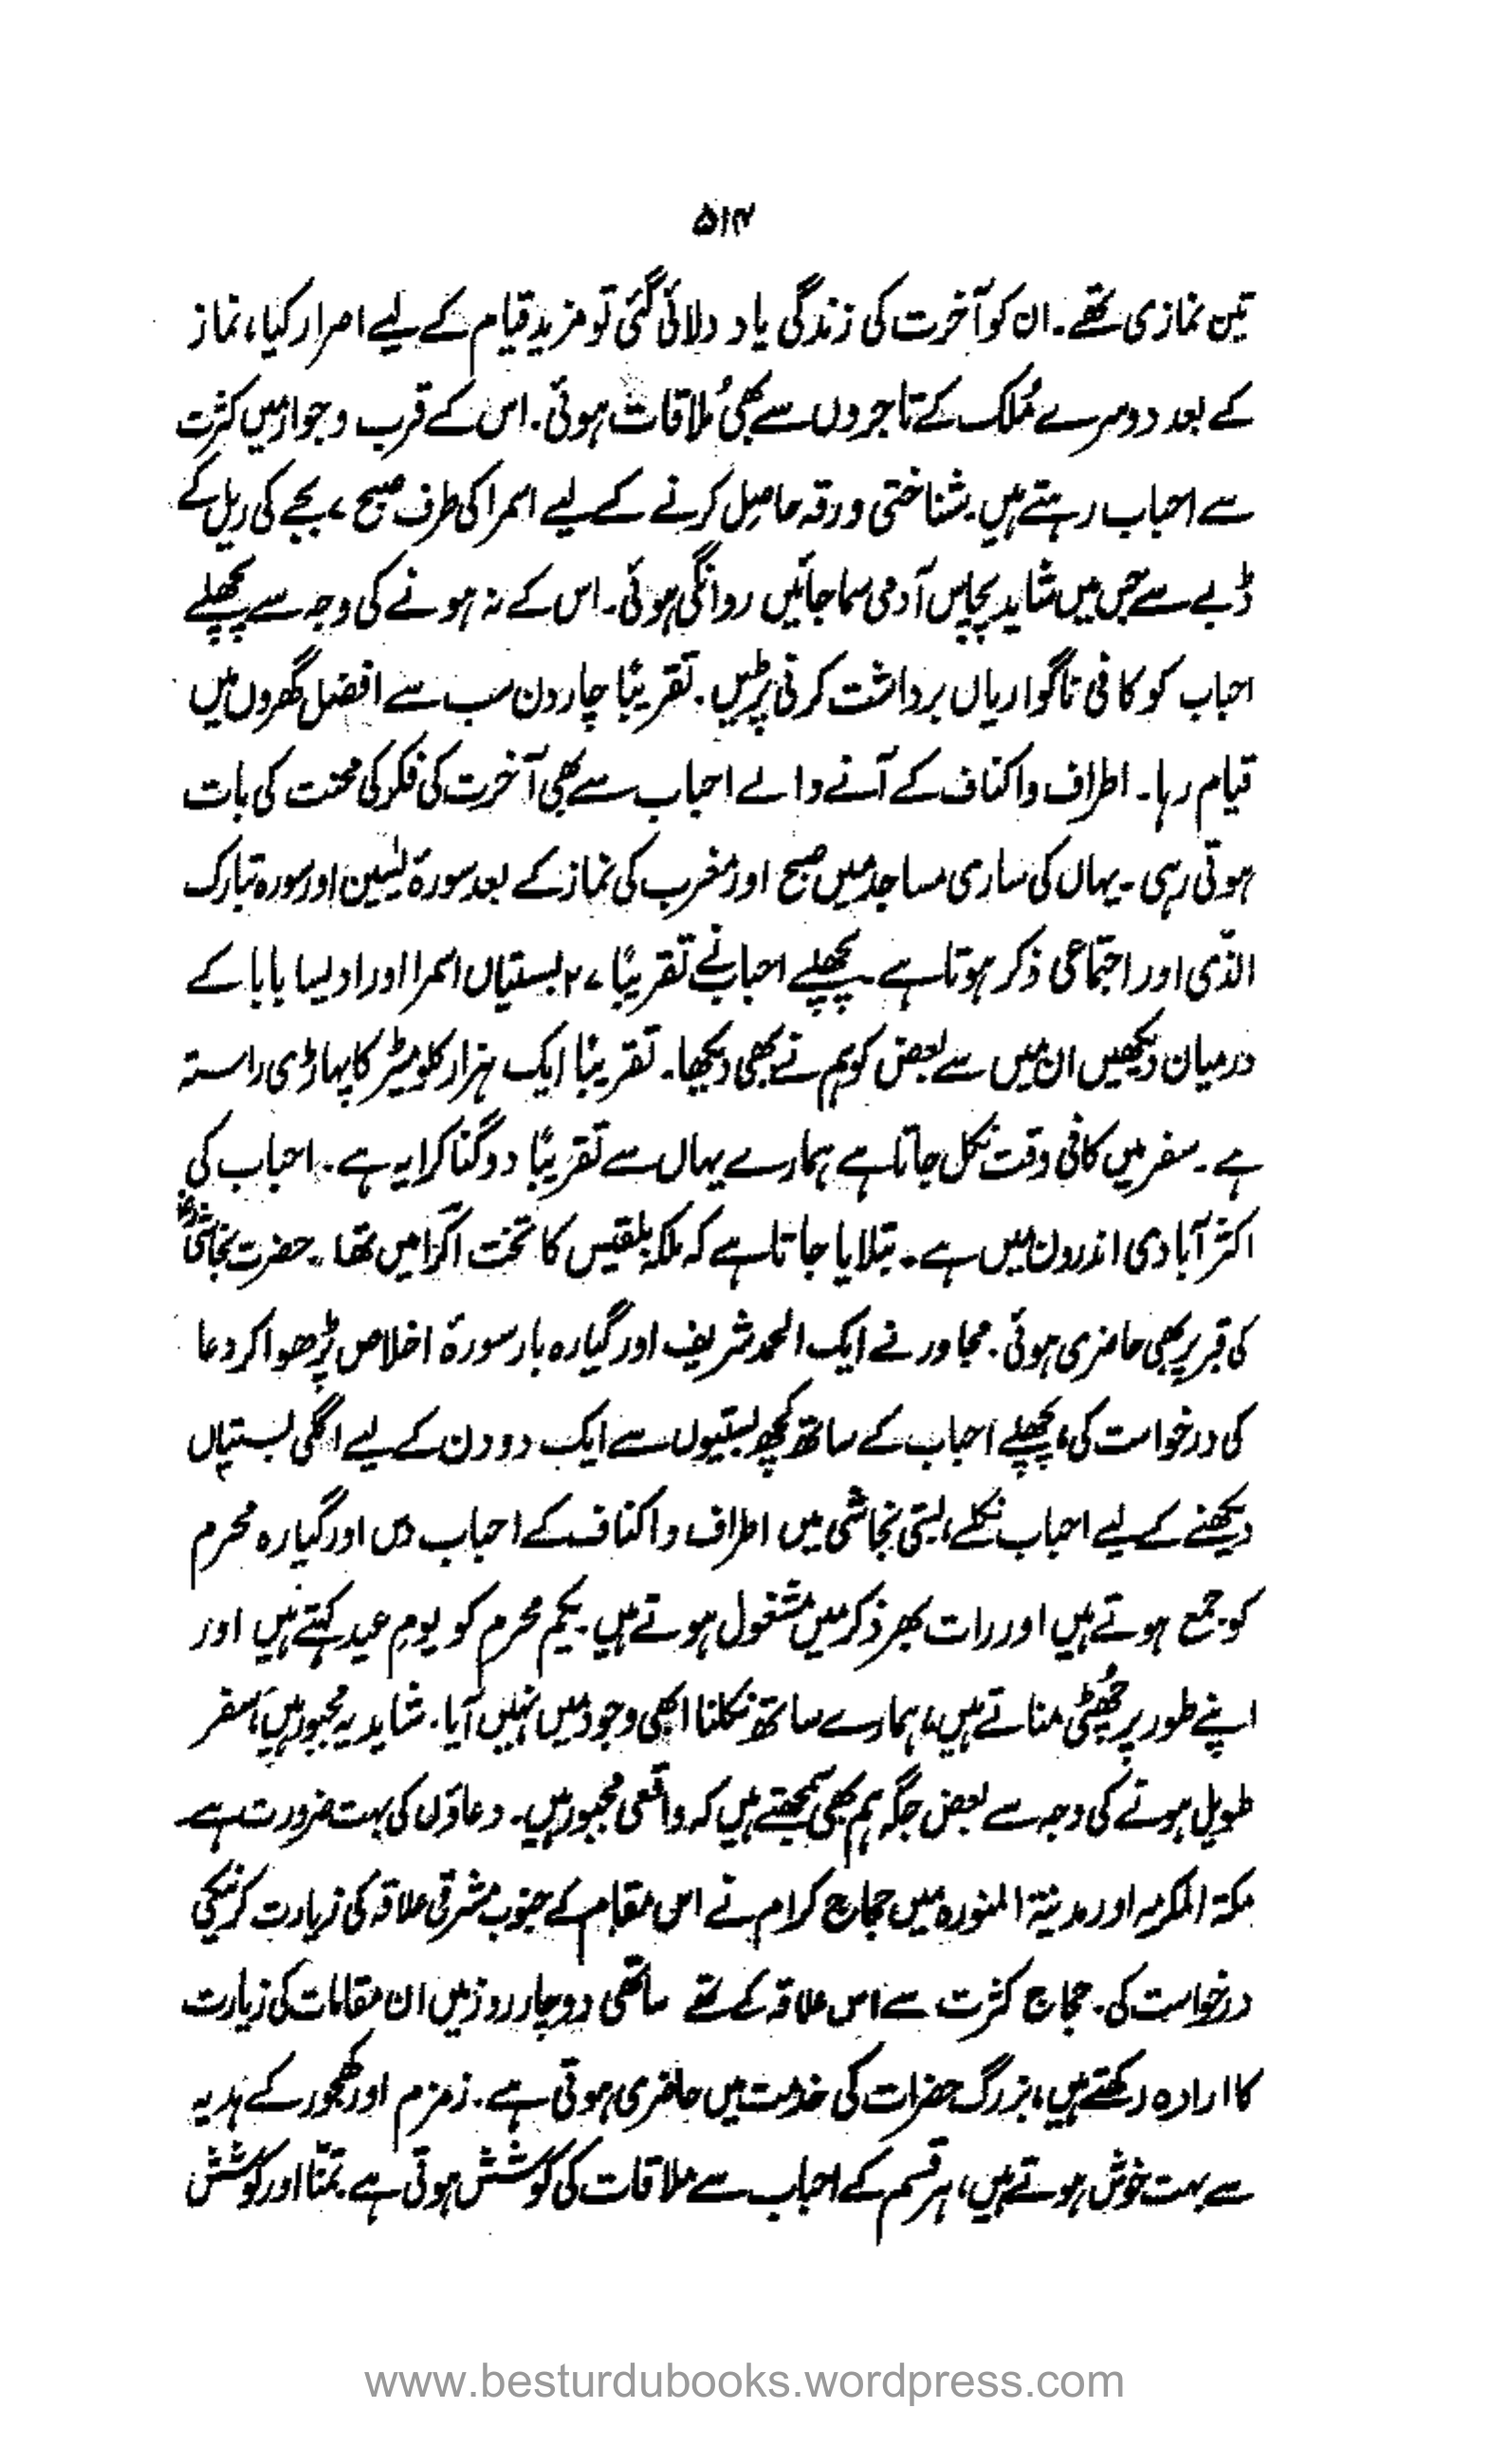 ۵۱۴
تین نمازی تھے۔ ان کو آخرت کی زندگی یاد دلائی گئی تو مزید قیام کے لیے اصرار کیا، نماز
کے بعد دوسرے مُلک کے تاجروں سے بھی مُلاقات ہوئی۔ اس کے قرب وجوار میں کثرت
سے احباب رہتے ہیں۔ شناختی ورقہ حاصل کرنے کے لیے اسمرا کی طرف صبح ۷ بجے کی ریل کے
ڈبے سے جس میں شاید پچاس آدمی سما جائیں روانگی ہوئی۔ اس کے نہ ہونے کی وجہ سے پچھلے
احباب کو کافی ناگواریاں برداشت کرنی پڑیں۔ تقریبًا چار دن سب سے افضل گھروں میں
قیام رہا۔ اطراف واکناف کے آنے والے احباب سے بھی آخرت کی فکر کی محنت کی بات
ہوتی رہی۔ یہاں کی ساری مساجد میں صبح اور مغرب کی نماز کے بعد سورۃ یٰسین اور سورہ تبارک
الذی اور اجتماعی ذکر ہوتا ہے۔ پچھلے احباب نے تقریبًا ۲۷ بستیاں اسمرا اور ادیسا بابا کے
درمیان دیکھیں ان میں سے بعض کو ہم نے بھی دیکھا۔ تقریبًا ایک ہزار کلومیٹر کا پہاڑی راستہ
ہے۔ سفر میں کافی وقت نکل جاتا ہے ہمارے یہاں سے تقریبًا دوگنا کرایہ ہے۔ احباب کی
اکثر آبادی اندرون میں ہے۔ بتلایا جاتا ہے کہ ملکہ بلقیس کا تخت اگزا میں تھا۔ حضرت نجاشیؓ
کی قبر پر بھی حاضری ہوئی۔ مجاور نے ایک الحمد شریف اور گیارہ بار سورۃ اخلاص پڑھوا کر دعا
کی درخواست کی، پچھلے احباب کے ساتھ کچھ بستیوں سے ایک دو دن کے لیے اگلی بستیاں
دیکھنے کے لیے احباب نکلے، بستی نجاشی میں اطراف واکناف کے احباب دس اور گیارہ محرم
کو جمع ہوتے ہیں اور رات بھر ذکر میں مشغول ہوتے ہیں۔ یکم محرم کو یوم عید کہتے ہیں اور
اپنے طور پر چھُٹی مناتے ہیں، ہمارے ساتھ نکلنا ابھی وجود میں نہیں آیا۔ شاید یہ مجبور ہیں، سفر
طویل ہونے کی وجہ سے بعض جگہ ہم بھی سمجھتے ہیں کہ واقعی مجبور ہیں۔ دعاؤں کی بہت ضرورت ہے۔
مکۃ المکرمہ اور مدینۃ المنورہ میں حجاج کرام نے اس مقام کے جنوب مشرقی علاقہ کی زیارت کرنیکی
درخواست کی۔ حجاج کثرت سے اس علاقہ کے تھے ساتھی دو چار روز میں ان مقامات کی زیارت
کا ارادہ رکھتے ہیں، بزرگ حضرات کی خدمت میں حاضری ہوتی ہے۔ زمزم اور کھجور کے ہدیہ
سے بہت خوش ہوتے ہیں، ہر قسم کے احباب سے ملاقات کی کوشش ہوتی ہے۔ تمنّا اور کوشش
www.besturdubooks.wordpress.com